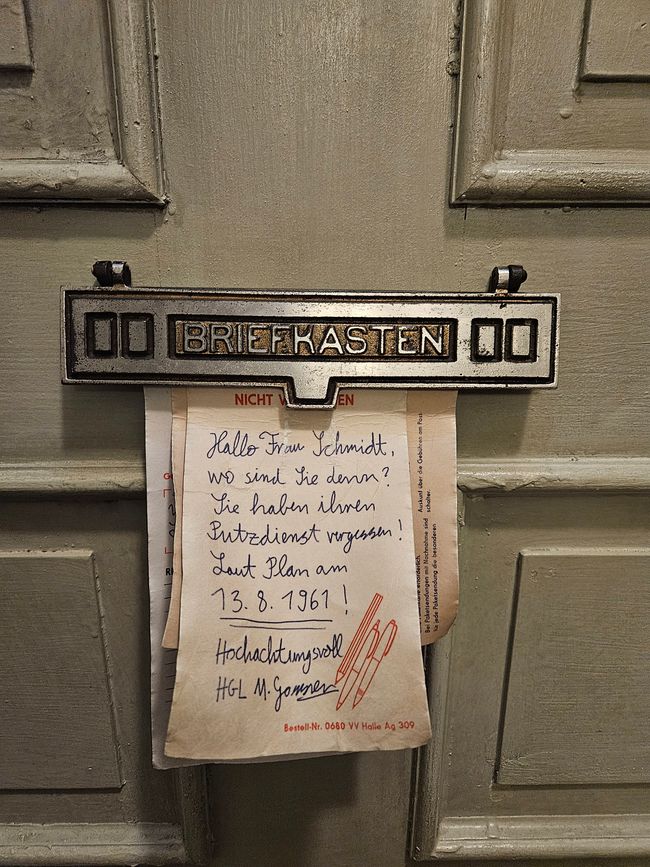 BRIEFKASTEN
NICHT
Hallo Frau Schmidt,
wo sind Sie denn?
Sie haben ihren
Putzdienst vergessen!
Laut Plan am
13. 8. 1961!
Hochachtungsvoll
HGL M.
Bestell-Nr. 0680 VV Halle Ag 309
Auskunft über die Gebühren am Post-
schalter.
erforderlich.
Bei Paketsendungen mit Nachnahme sind
für jede Paketsendung die besonderen